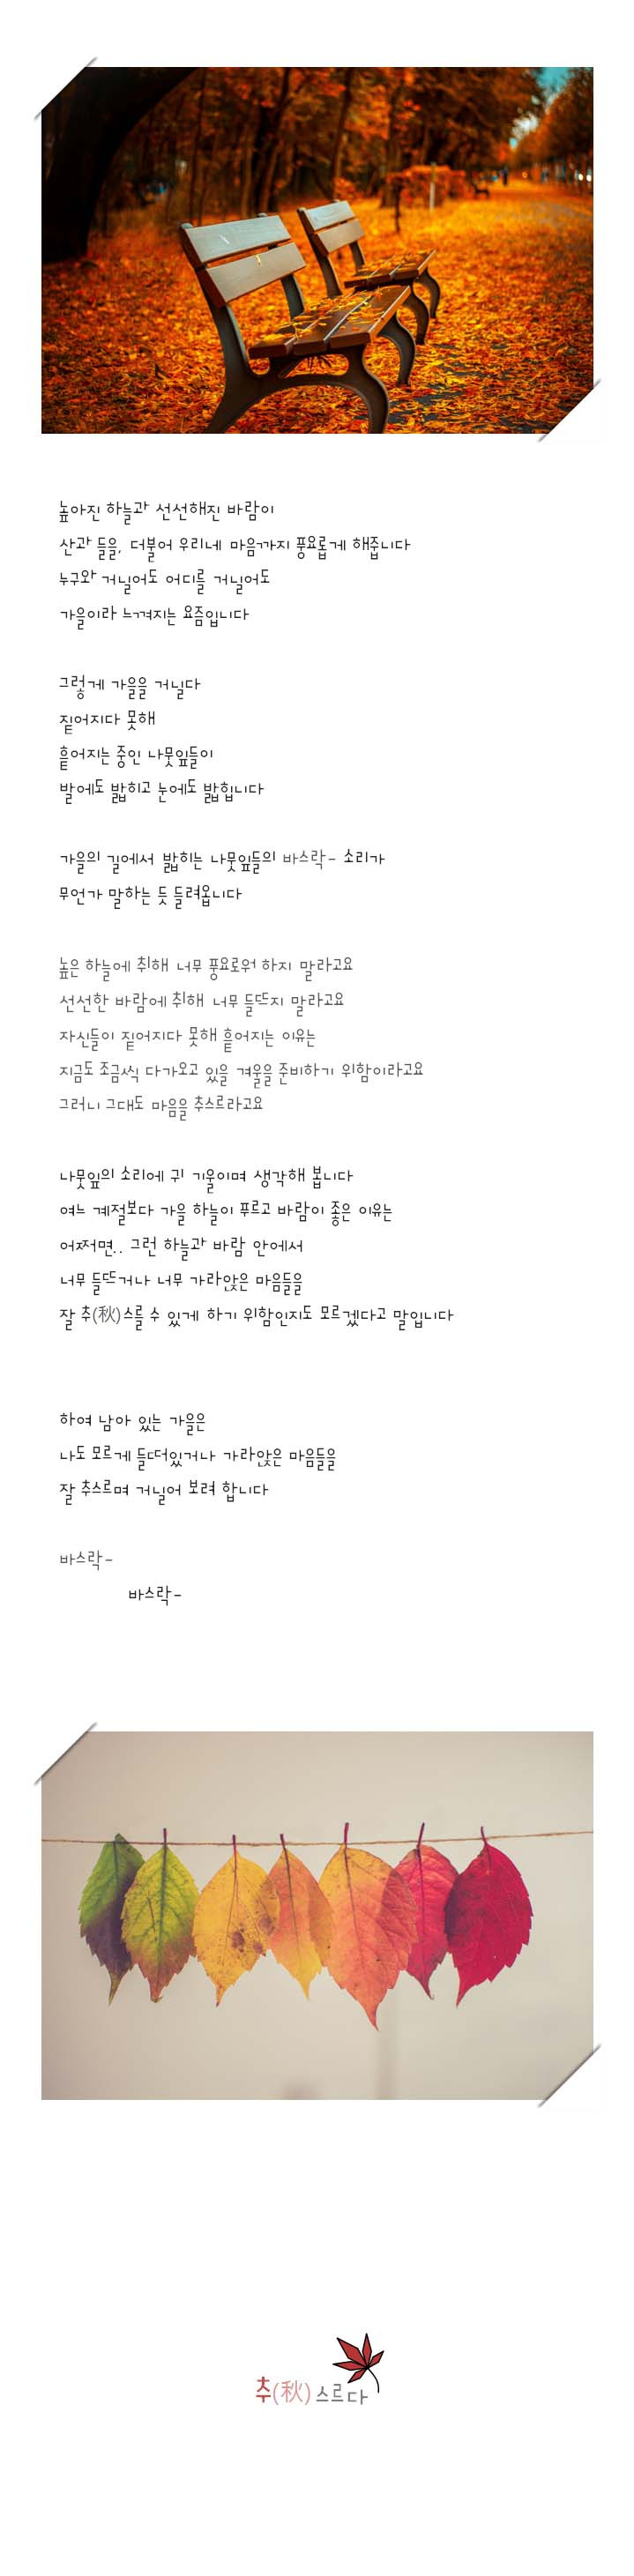 높아진 하늘과 선선해진 바람이
산과 들을, 더불어 우리네 마음까지 풍요롭게 해줍니다
누구와 거닐어도 어디를 거닐어도
가을이라 느껴지는 요즘입니다
그렇게 가을을 거닐다
짙어지다 못해
흩어지는 중인 나뭇잎들이
발에도 밟히고 눈에도 밟힙니다
가을의 길에서 밟히는 나뭇잎들의 바스락~ 소리가
무언가 말하는 듯 들려옵니다
높은 하늘에 취해 너무 풍요로워 하지 말라고요
선선한 바람에 취해 너무 들뜨지 말라고요
자신들이 짙어지다 못해 흩어지는 이유는
지금도 조금씩 다가오고 있을 겨울을 준비하기 위함이라고요
그러니 그대도 마음을 추스르라고요
나뭇잎의 소리에 귀 기울이며 생각해 봅니다
여느 계절보다 가을 하늘이 푸르고 바람이 좋은 이유는
어쩌면.. 그런 하늘과 바람 안에서
너무 들뜨거나 너무 가라앉은 마음들을
잘 추(秋)스를 수 있게 하기 위함인지도 모르겠다고 말입니다
하여 남아 있는 가을은
나도 모르게 들떠있거나 가라앉은 마음들을
잘 추스르며 거닐어 보려 합니다
바스락~
바스락~
추(秋)스르다